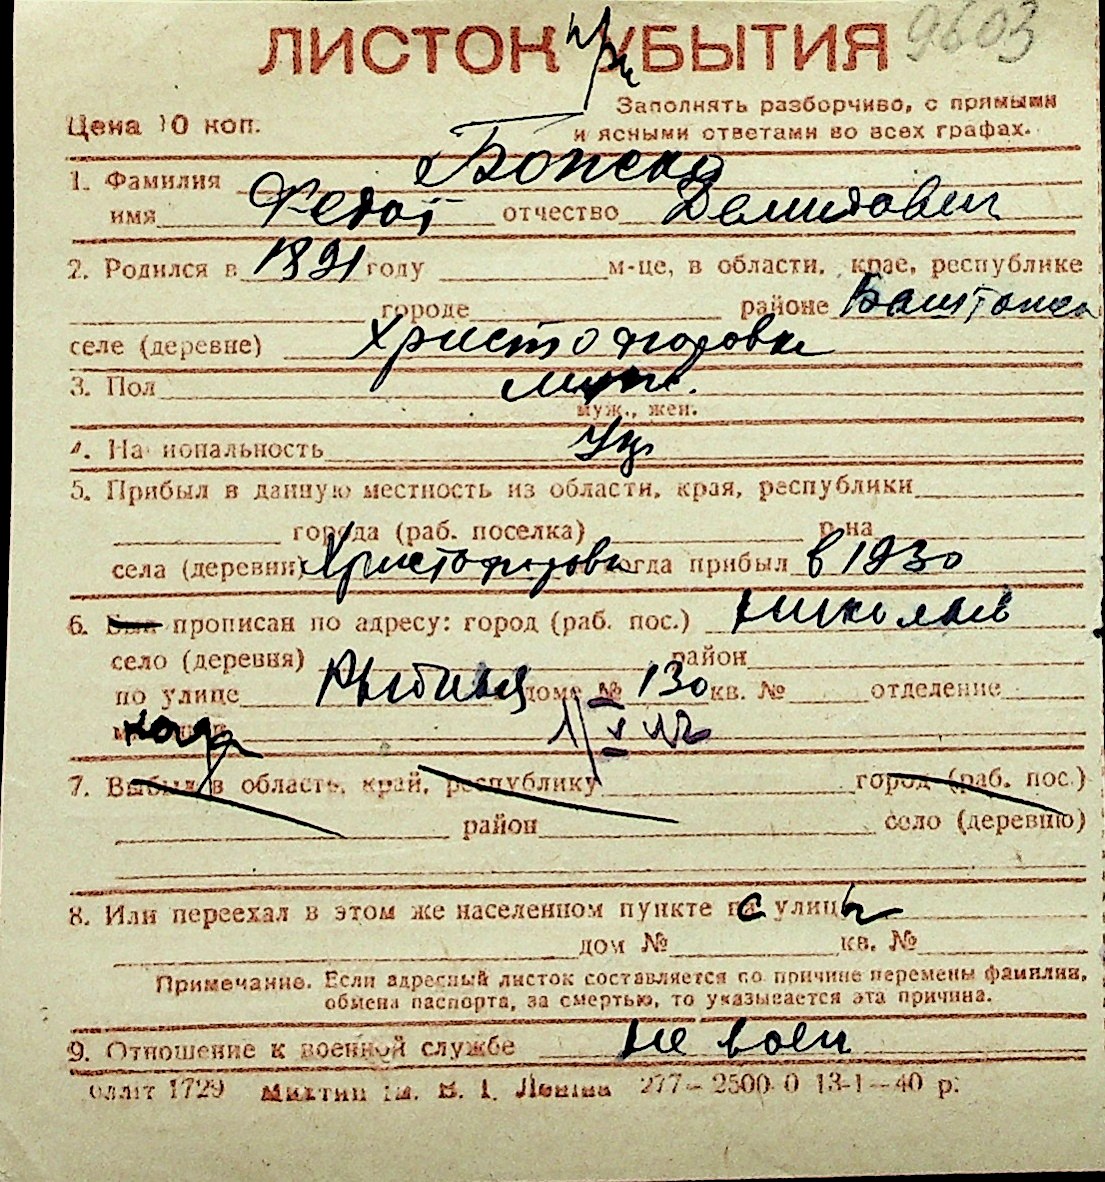 9603
ЛИСТОК УБЫТИЯ
Заполнять разборчиво, с прямыми
Цена 10 коп. и ясными ответами во всех графах.
1. Фамилия
имя Федот отчество Демидович
2. Родился в 1891 году м-це, в области, крае, республике
городе районе Баштанка
селе (деревне) Христофоровка
3. Пол муж.
муж., жен.
4. Национальность Укр
5. Прибыл в данную местность из области, края, республики
города (раб. поселка) р-на
села (деревни) Христофоровка когда прибыл в 1930
6. Был прописан по адресу: город (раб. пос.) Николаев
село (деревня) район
по улице Рыбная доме № 130 кв. № отделение
7. Выбыл в область, край, республику город (раб. пос.)
район село (деревню)
8. Или переехал в этом же населенном пункте с улицы
дом № кв. №
Примечание. Если адресный листок составляется по причине перемены фамилии,
обмена паспорта, за смертью, то указывается эта причина.
9. Отношение к военной службе не воен
облліт 1729 Миктип ім. В. І. Леніна 277—2500 0 13-1—40 р.